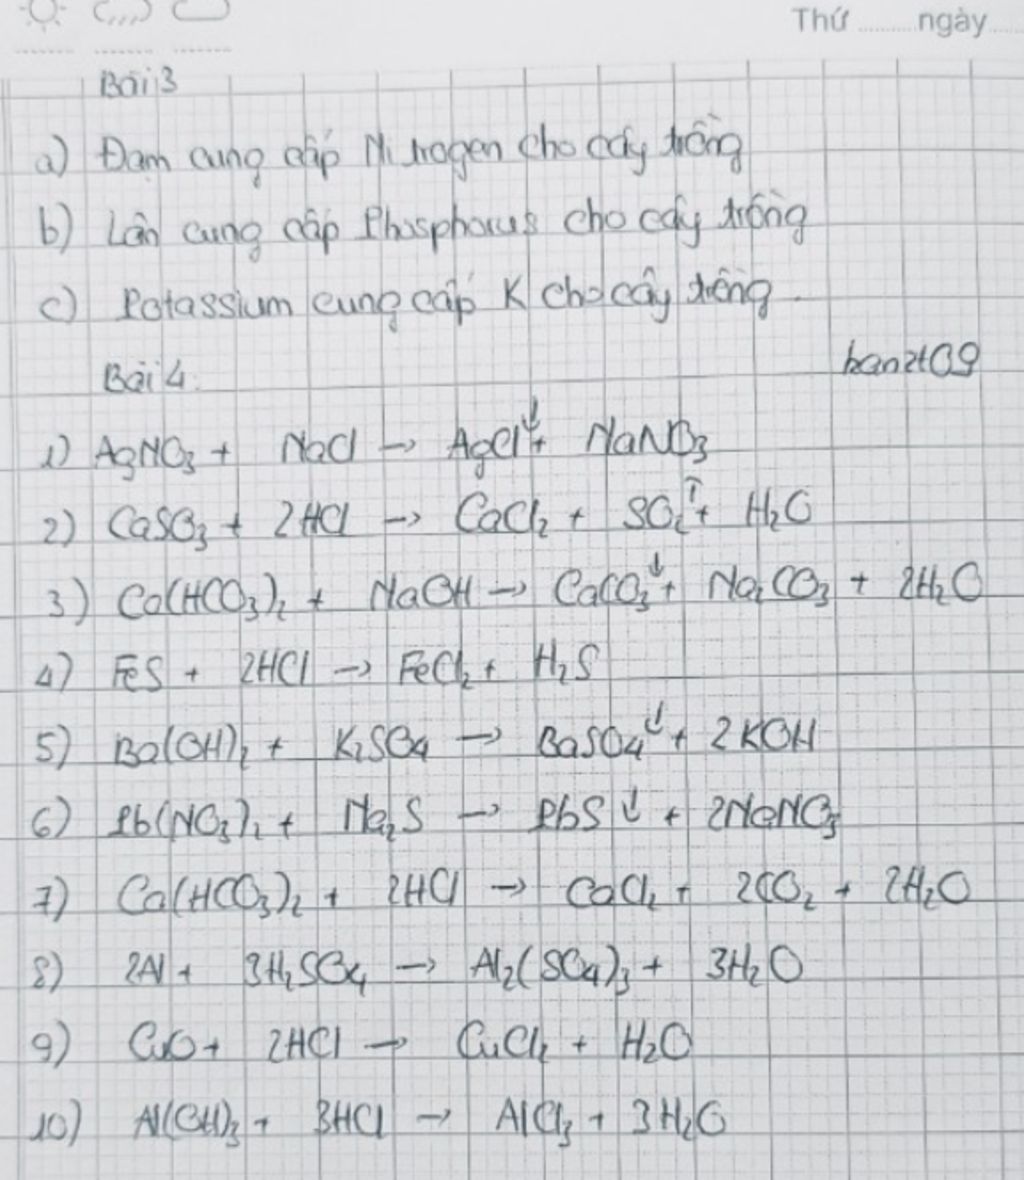 Thứ ........ ngày
Bài 3
a) Đạm cung cấp Nitrogen cho cây trồng
b) Lân cung cấp Phosphorus cho cây trồng
c) Potassium cung cấp K cho cây trồng.
Bài 4.
hanzt09
1) AgNO₃ + NaCl → AgCl↓ + NaNO₃
2) CaSO₃ + 2HCl → CaCl₂ + SO₂↑ + H₂O
3) Ca(HCO₃)₂ + NaOH → CaCO₃↓ + Na₂CO₃ + 2H₂O
4) FeS + 2HCl → FeCl₂ + H₂S
5) Ba(OH)₂ + K₂SO₄ → BaSO₄↓ + 2KOH
6) Pb(NO₃)₂ + Na₂S → PbS↓ + 2NaNO₃
7) Ca(HCO₃)₂ + 2HCl → CaCl₂ + 2CO₂ + 2H₂O
8) 2Al + 3H₂SO₄ → Al₂(SO₄)₃ + 3H₂O
9) CuO + 2HCl → CuCl₂ + H₂O
10) Al(OH)₃ + 3HCl → AlCl₃ + 3H₂O